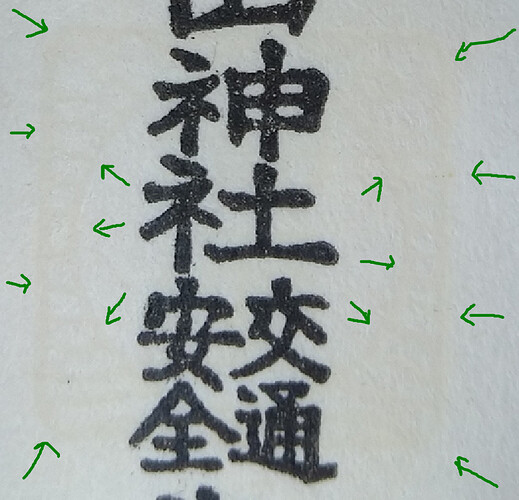 山神社
交通
安全